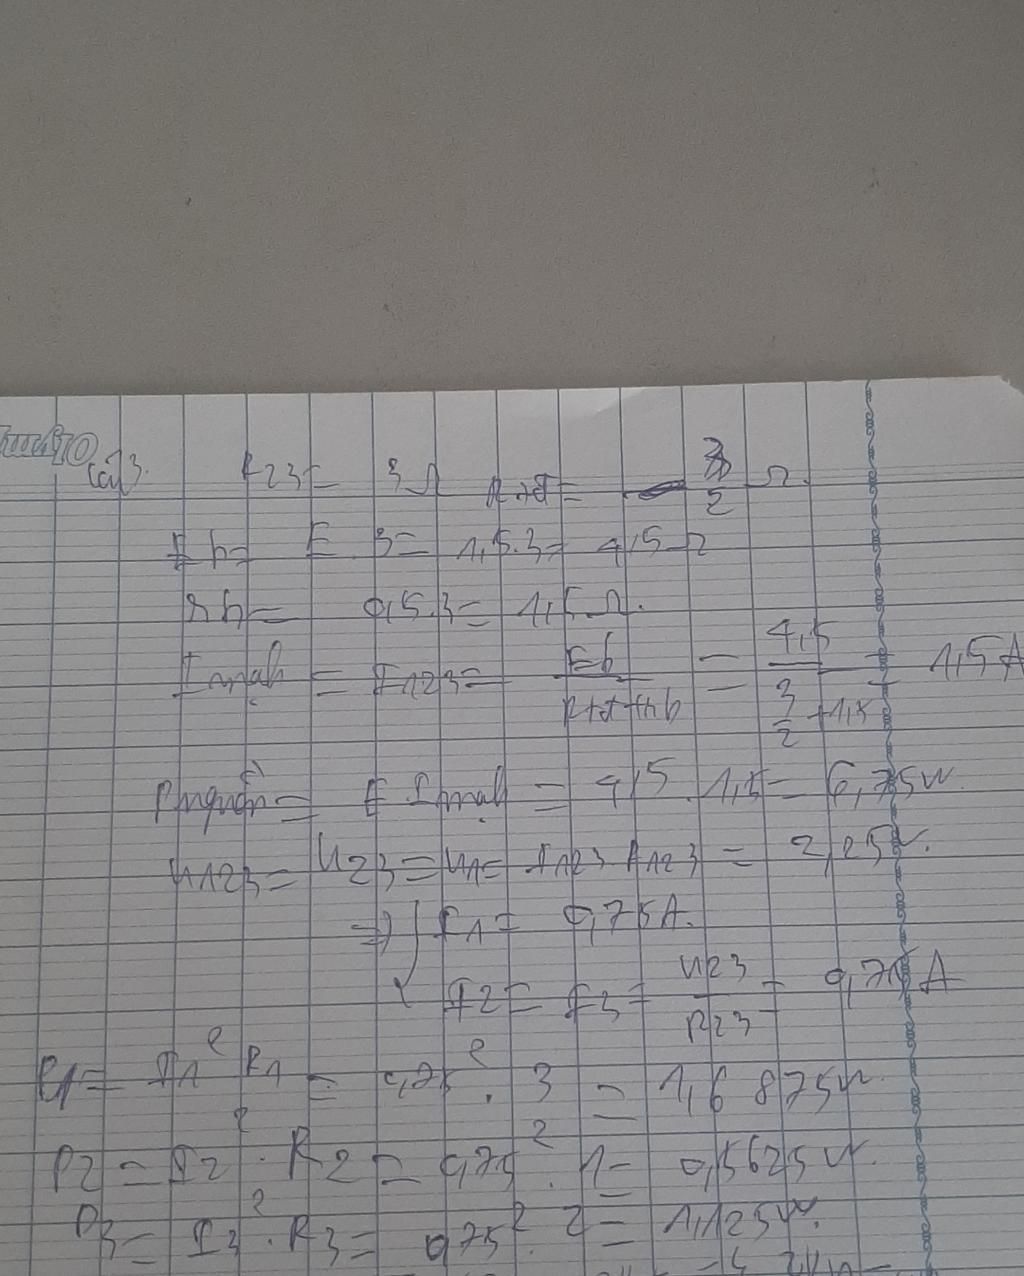 Câu 3.
R23 = 3Ω Rtđ = 3/2 Ω.
Eb = E.3 = 1,5.3 = 4,5 Ω
rb = 0,5.3 = 1,5 Ω.
Imạch = I123 = Eb/(Rtđ+rb) = 4,5/(3/2+1,5) = 1,5A
Pnguồn = E Imạch = 4,5.1,5 = 6,75W.
U123 = U23 = U1 = I123 R123 = 2,25V.
=> { I1 = 0,75A.
I2 = I3 = U23/R23 = 0,75A
P1 = I1² R1 = 0,75². 3 = 1,6875W.
P2 = I2². R2 = 0,75². 1 = 0,5625W.
P3 = I3². R3 = 0,75². 2 = 1,125W.